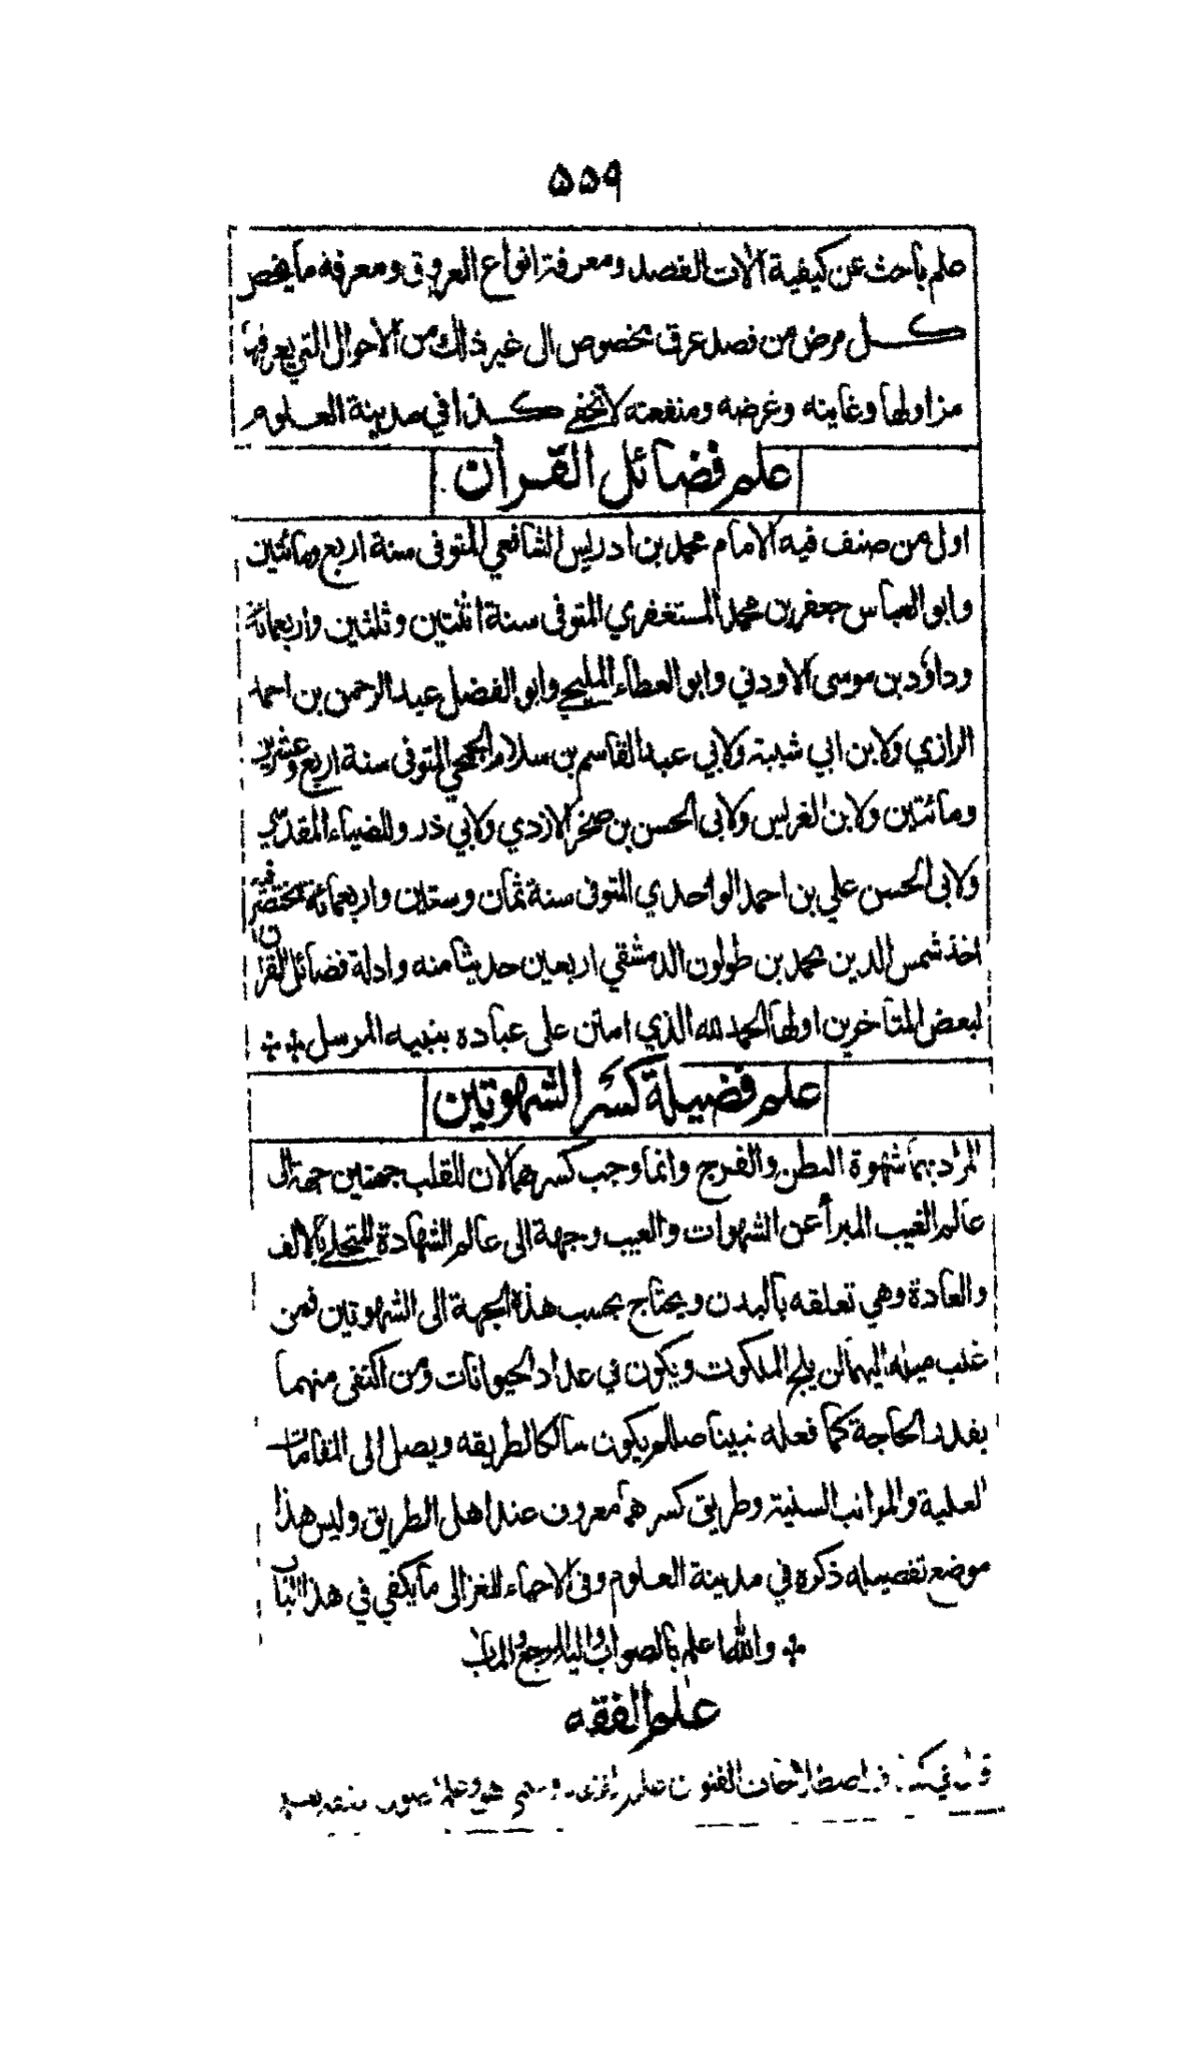 ٥٥٩
علم باحث عن كيفية آلات الفصد ومعرفة انواع العروق ومعرفة ما يخص
كل مرض من فصد عرق مخصوص الى غير ذلك من الاحوال التي يعرفها
مزاولها وغايته وغرضه ومنفعته لا تخفى كذا في مدينة العلوم
علم فضائل القرآن
اول من صنف فيه الامام محمد بن ادريس الشافعي المتوفى سنة اربع ومائتين
وابو العباس جعفر بن محمد المستغفري المتوفى سنة اثنتين وثلثين واربعمائة
وداؤد بن موسى الاودني وابو العطاء المليحي وابو الفضل عبد الرحمن بن احمد
الرازي ولابن ابي شيبة ولابي عبد القاسم بن سلام الجمحي المتوفى سنة اربع وعشرين
ومائتين ولابن الغريس ولابى الحسن بن صخر الازدي ولابي ذر وللضياء المقدسي
ولابى الحسن علي بن احمد الواحدي المتوفى سنة ثمان وستين واربعمائة مختصر
اخذ شمس الدين محمد بن طولون الدمشقي اربعين حديثا منه وادلة فضائل القران
لبعض المتاخرين اولها الحمد لله الذي امتن على عباده بنبيه المرسل
علم فضيلة كسر الشهوتين
المراد بهما شهوة البطن والفرج وانما وجب كسرهما لان للقلب جهتين جهة الى
عالم الغيب المبرأ عن الشهوات والعيب وجهة الى عالم الشهادة المتحلي بالالف
والعادة وهي تعلقه بالبدن ويحتاج بحسب هذه الجهة الى الشهوتين فمن
غلب ميله اليهما لن يلج الملكوت ويكون في عداد الحيوانات ومن اكتفى منهما
بقدر الحاجة كما فعله نبينا صللم يكون سالكا لطريقه ويصل الى المقامات
العلية والمراتب السنية وطريق كسرهما معروف عند اهل الطريق وليس هذا
موضع تفصيله ذكره في مدينة العلوم وفى الاحياء للغزالى ما يكفي في هذا الباب
والله اعلم بالصواب واليه المرجع والمآب
علم الفقه
قال في اصطلاحات الفنون علم